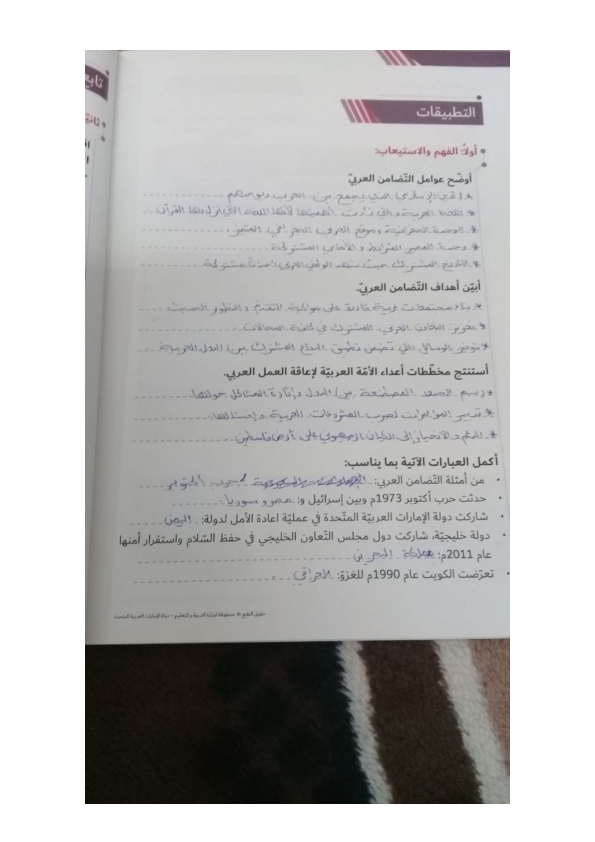 تابع
التطبيقات
أولاً: الفهم والاستيعاب:
أوضّح عوامل التّضامن العربيّ
* الدين الإسلامي الذي يجمع بين العرب ويوحدهم
* اللغة العربية والتي زادت أهميتها لأنها اللغة التي نزل بها القرآن
* الوحدة الجغرافية وموقع العربي الجغرافي المتميز
* وحدة المصير المترابط والأماني المشتركة
* التاريخ المشترك حيث شهد الوطن العربي أحداثاً مشتركة
أبيّن أهداف التّضامن العربيّ.
* بناء مجتمعات عربية قادرة على مواكبة التقدم والتطور الحديث
* تعزيز التعاون العربي المشترك في كافة المجالات
* توفير الوسائل التي تضمن تطبيق الدفاع المشترك بين الدول العربية
أستنتج مخطّطات أعداء الأمّة العربيّة لإعاقة العمل العربي.
* رسم الحدود المصطنعة بين الدول وإثارة المشاكل حولها
* تدبير المؤامرات لضرب المشروعات العربية وإفشالها
* الدعم والانحياز إلى الكيان الصهيوني على أرض فلسطين
أكمل العبارات الآتية بما يناسب:
• من أمثلة التّضامن العربي: حرب أكتوبر
• حدثت حرب أكتوبر 1973م وبين إسرائيل و: مصر وسوريا
• شاركت دولة الإمارات العربيّة المتّحدة في عمليّة اعادة الأمل لدولة: اليمن
• دولة خليجيّة، شاركت دول مجلس التّعاون الخليجي في حفظ السّلام واستقرار أمنها
عام 2011م: مملكة البحرين
• تعرّضت الكويت عام 1990م للغزوّ: العراقي
حقوق الطبع © محفوظة لوزارة التربية والتعليم – دولة الإمارات العربية المتحدة